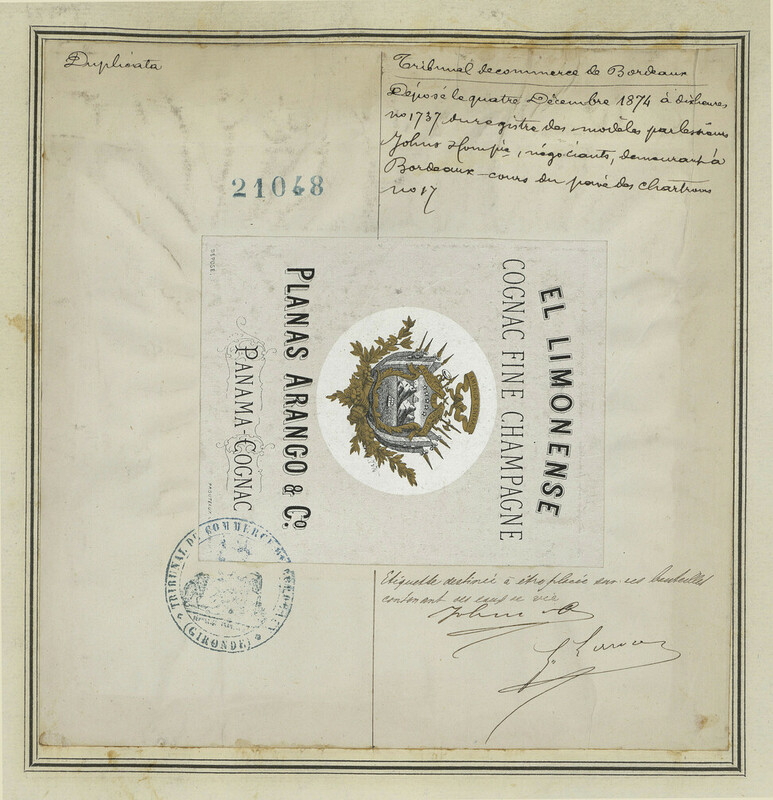 Duplicata
21048
Tribunal de commerce de Bordeaux
Déposé le quatre Décembre 1874 à dix heures
no 1737 du registre des modèles par les sieurs
Johns & Compie, négociants, demeurant à
Bordeaux cours du pavé des chartrons
no 17
EL LIMONENSE
COGNAC FINE CHAMPAGNE
PLANAS ARANGO & Co.
PANAMA-COGNAC
DÉPOSÉ
TRIBUNAL DE COMMERCE DE BORDEAUX
(GIRONDE)
Etiquette destinée à être placée sur des bouteilles
contenant des eaux de vie
Johns